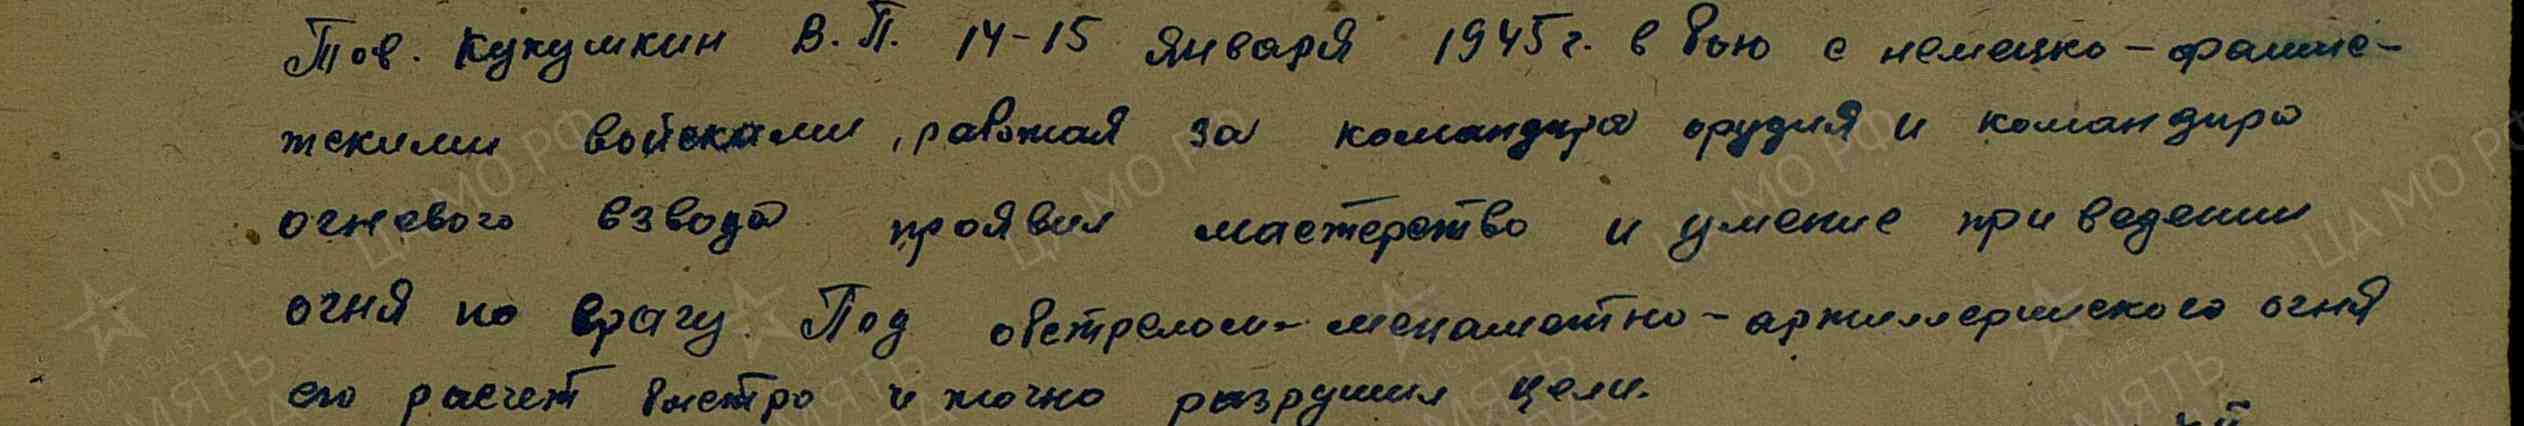 Тов. Кукушкин В.П. 14-15 января 1945 г. в бою с немецко-фашис-
тскими войсками, работая за командира орудия и командира
огневого взвода проявил мастерство и умение при ведении
огня по врагу. Под обстрелом минометно-артиллерийского огня
его расчет быстро и точно разрушил цели.